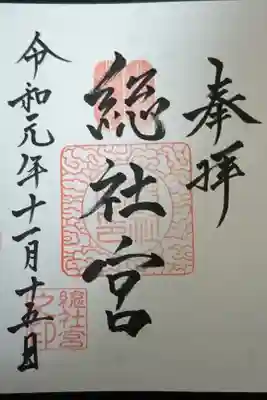 奉拝
総社宮
令和元年十一月十五日
總社宮
之印